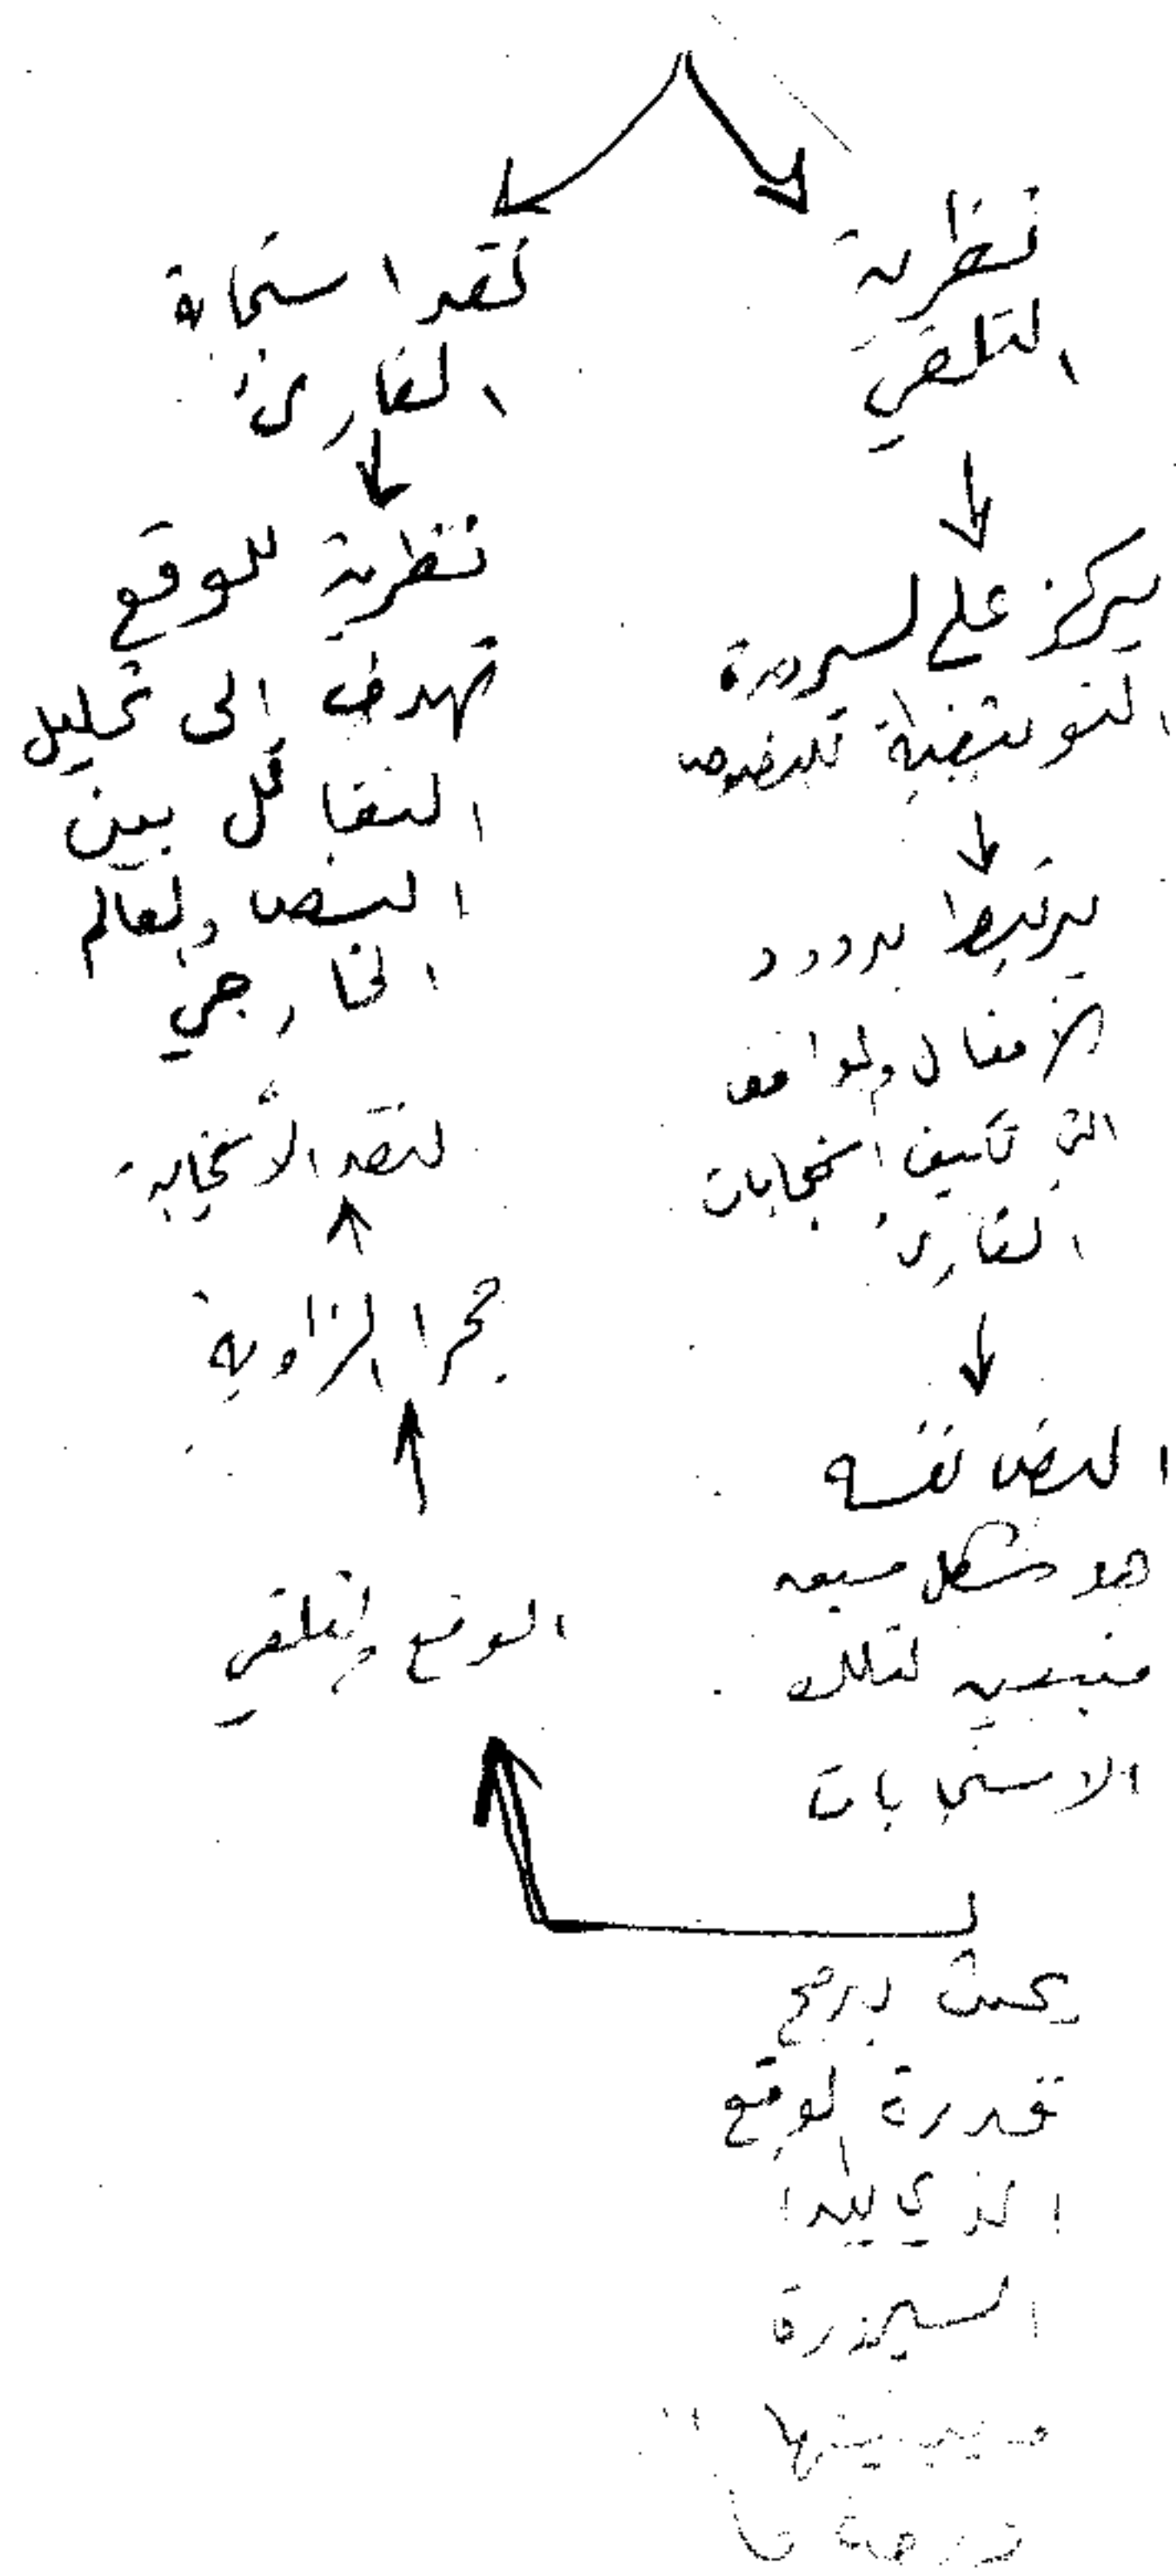 نظرية
التلقي
يركز على السيرورة
التوثيقية للنصوص
يرتبط بردود
الأفعال والمواقف
التي تكيف استجابات
القارئ
النص نفسه
هو شكل مسبق
لتلك
الاستجابات
بحيث
قدرة الوقع
الذي يبدأ
السيرورة
نقد استجابة
القارئ
نظرية للوقع
تهدف إلى تحليل
التفاعل بين
النص والعالم
الخارجي
لنقد الاستجابة
حجر الزاوية
الوقع والتلقي